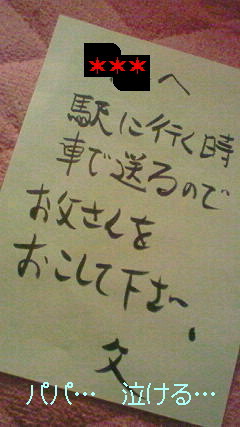 ***へ
駅に行く時
車で送るので
お父さんを
おこして下さい
父
パパ… 泣ける…